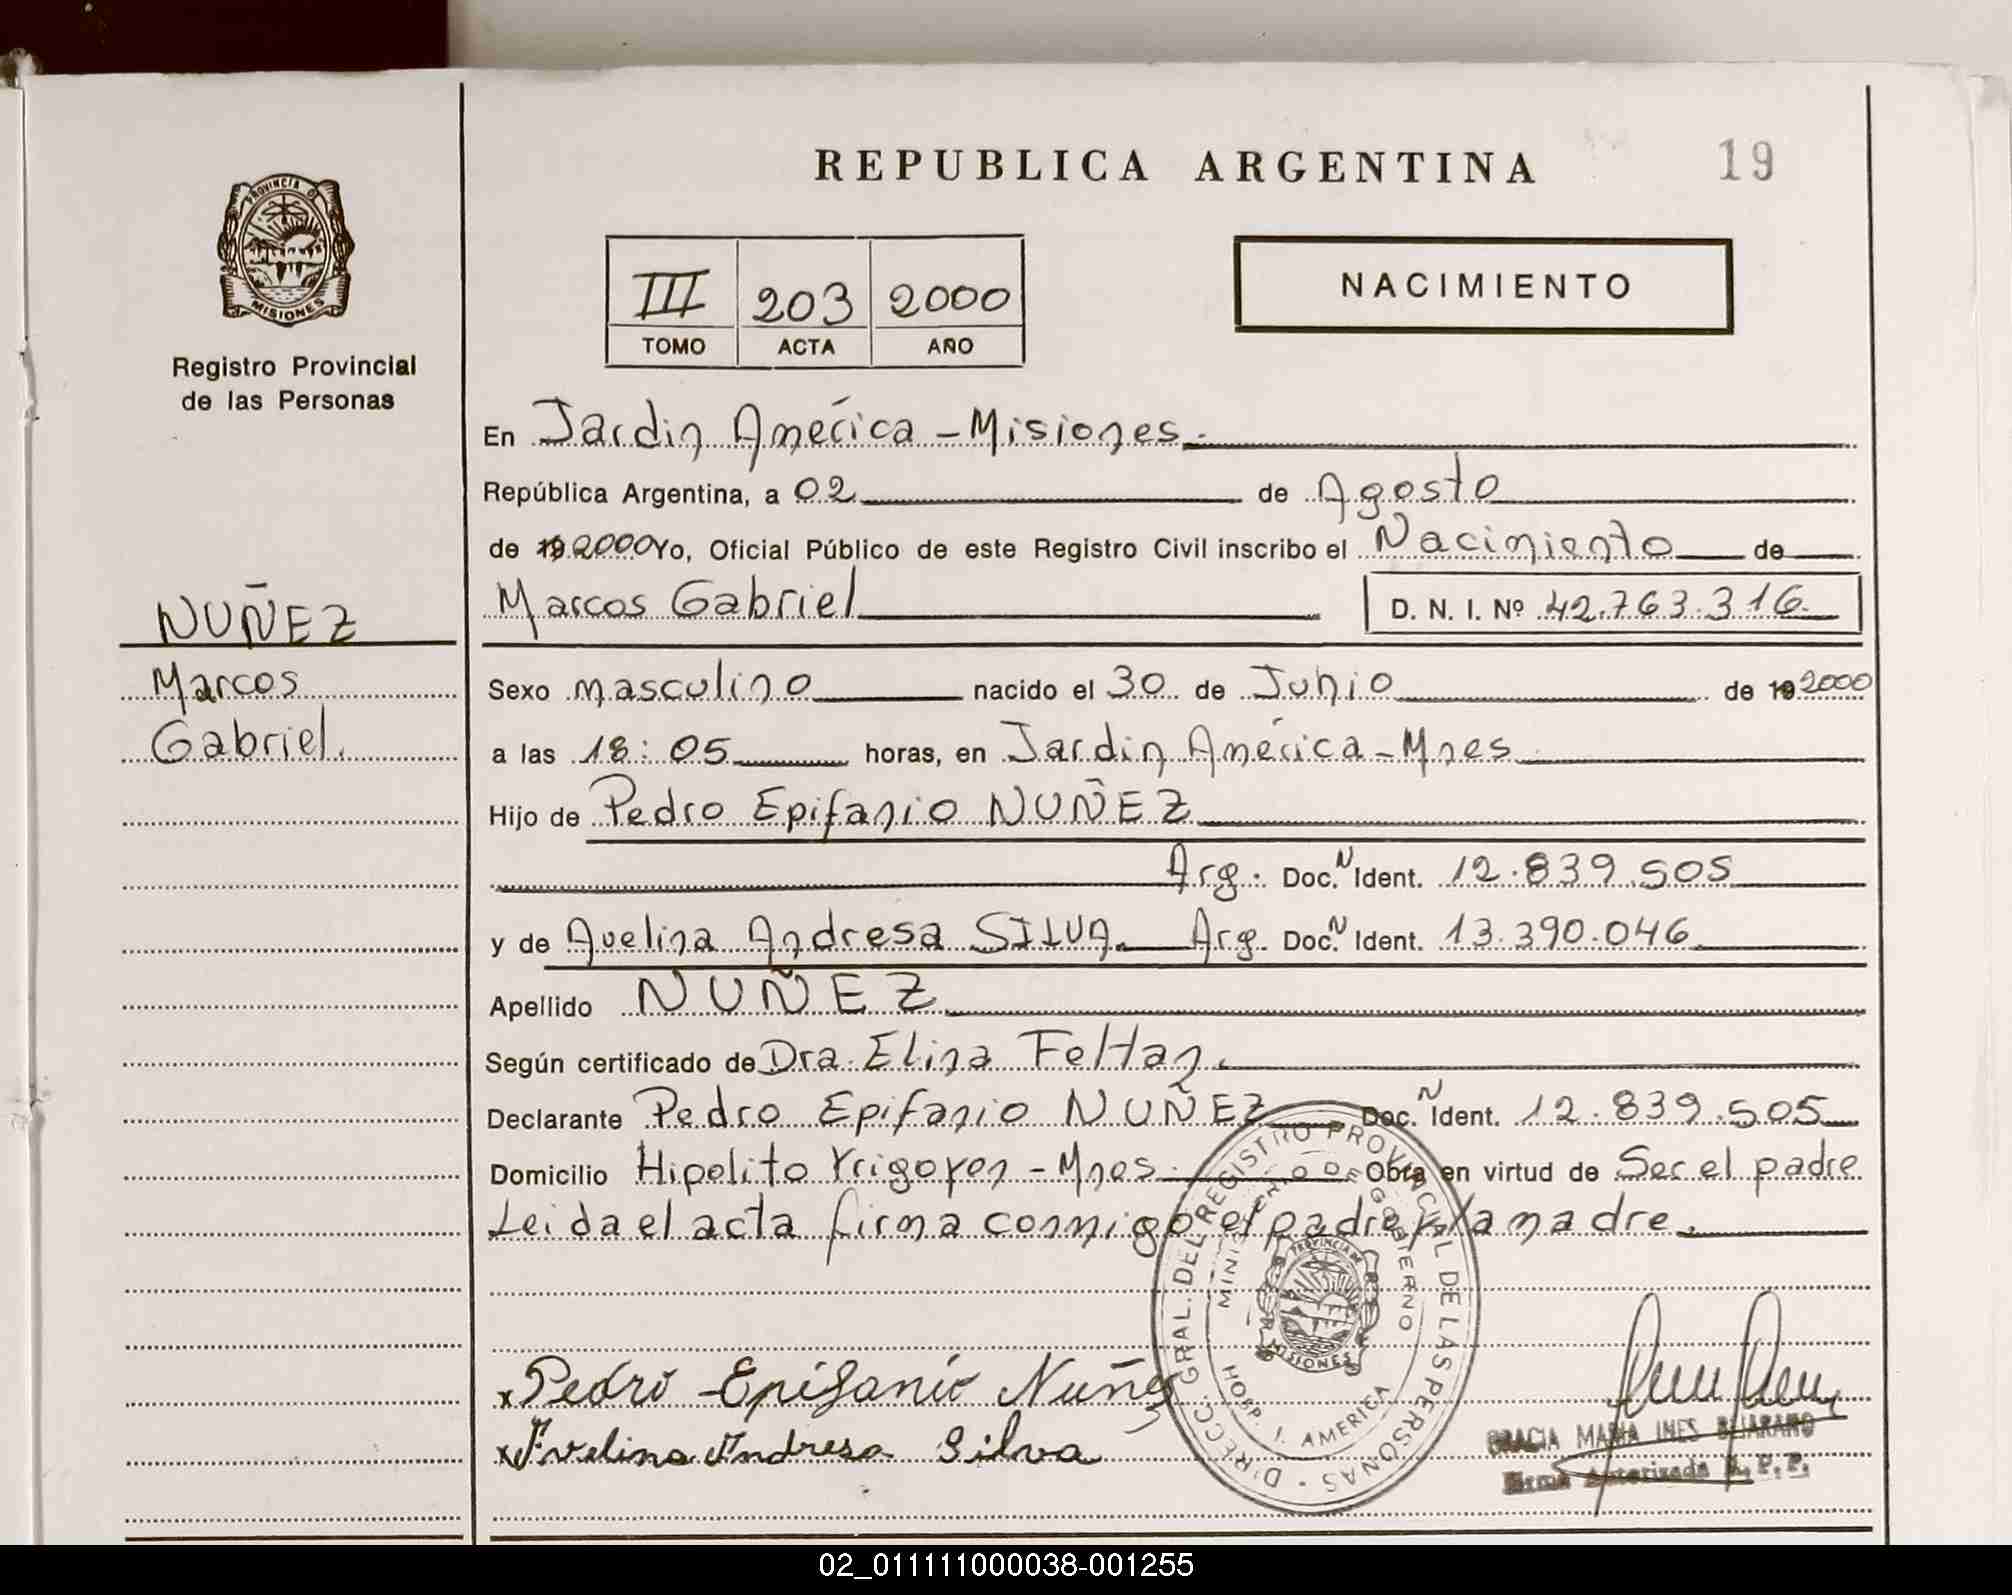 REPUBLICA ARGENTINA
19
PROVINCIA DE
MISIONES
Registro Provincial
de las Personas
III 203 2000
TOMO ACTA AÑO
NACIMIENTO
NUÑEZ
Marcos
Gabriel.
En Jardin América - Misiones.
República Argentina, a 02 de Agosto
de 19 2000 Yo, Oficial Público de este Registro Civil inscribo el Nacimiento de
Marcos Gabriel D. N. I. Nº 42.763.316.
Sexo masculino nacido el 30 de Junio de 19 2000
a las 18:05 horas, en Jardin América - Mnes
Hijo de Pedro Epifanio NUÑEZ
Arg. Doc. N Ident. 12.839.505
y de Avelina Andresa SILVA Arg. Doc. N Ident. 13.390.046
Apellido NUÑEZ
Según certificado de Dra. Elina Feltan.
Declarante Pedro Epifanio NUÑEZ Doc. N Ident. 12.839.505
Domicilio Hipolito Yrigoyen - Mnes. Obra en virtud de Ser el padre
Leida el acta firma conmigo el padre y la madre.
DIRECC. GRAL. DEL REGISTRO PROVINCIAL DE LAS PERSONAS
MINISTERIO DE GOBIERNO
PROVINCIA DE
MISIONES
HOSP. J. AMERICA
x Pedro Epifanio Nuñez
x Avelina Andresa Silva
GRACIA MARIA INES BEJARANO
Firma Autorizada R. P. P.
02_011111000038-001255